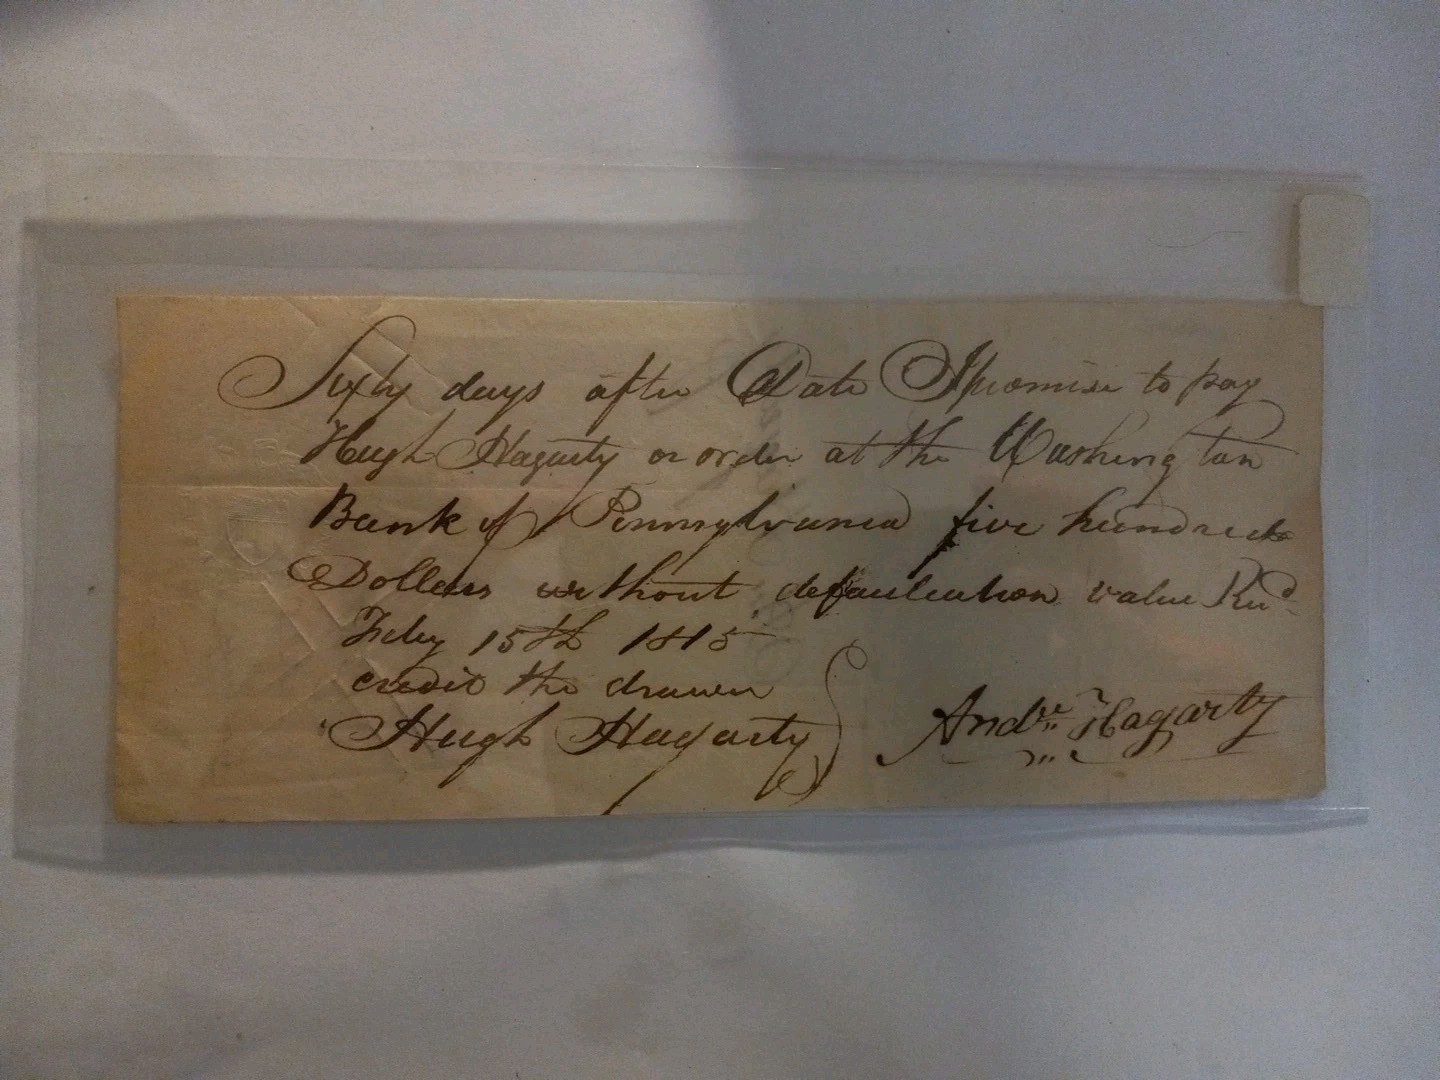 Sixty days after Date I promise to pay
Hugh Hagarty or order at the Washington
Bank of Pennsylvania five hundred
Dollars without defaulcation value Recd
Feby 15th 1815
credit the drawer
Hugh Hagarty
Andw. Hagarty